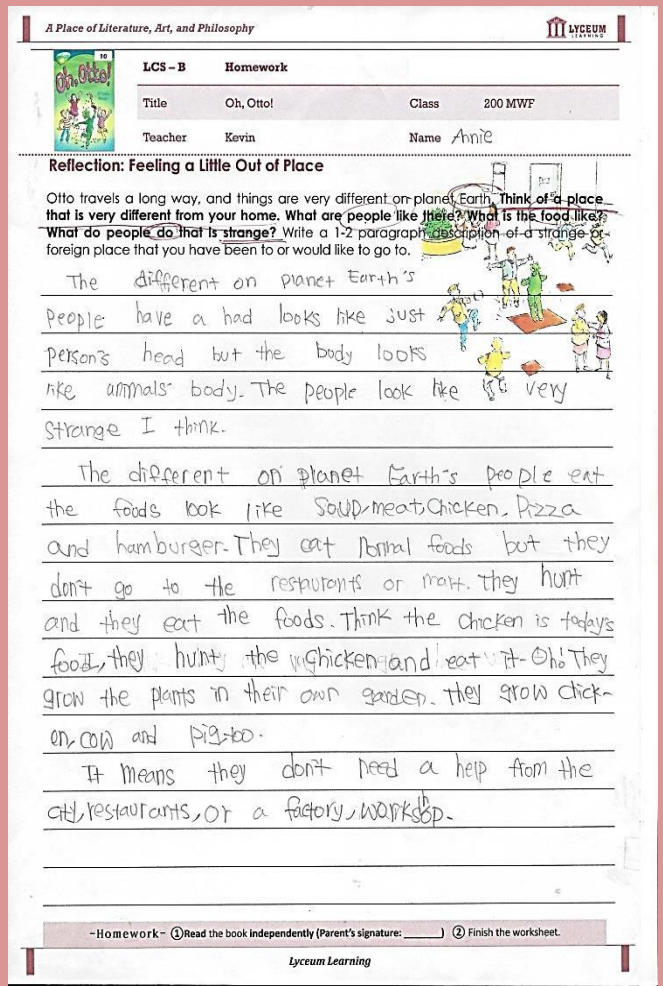 A Place of Literature, Art, and Philosophy
LYCEUM
LEARNING
10
Oh, Otto!
LCS – B Homework
Title Oh, Otto! Class 200 MWF
Teacher Kevin Name Annie
Reflection: Feeling a Little Out of Place
Otto travels a long way, and things are very different on planet Earth. Think of a place
that is very different from your home. What are people like there? What is the food like?
What do people do that is strange? Write a 1-2 paragraph description of a strange or
foreign place that you have been to or would like to go to.
The different on planet Earth's
People have a had looks like just
person's head but the body looks
like animals' body. The people look like very
strange I think.
The different on planet Earth's people eat
the foods look like soup, meat, chicken, pizza
and hamburger. They eat normal foods but they
don't go to the restaurants or mart. They hunt
and they eat the foods. Think the chicken is today's
food, they hunt the chicken and eat it. Oh! They
grow the plants in their own garden. They grow chick-
en, cow and pig too.
It means they don't need a help from the
restaurants, or a factory, workshop.
-Homework- ①Read the book independently (Parent's signature: ______) ② Finish the worksheet.
Lyceum Learning